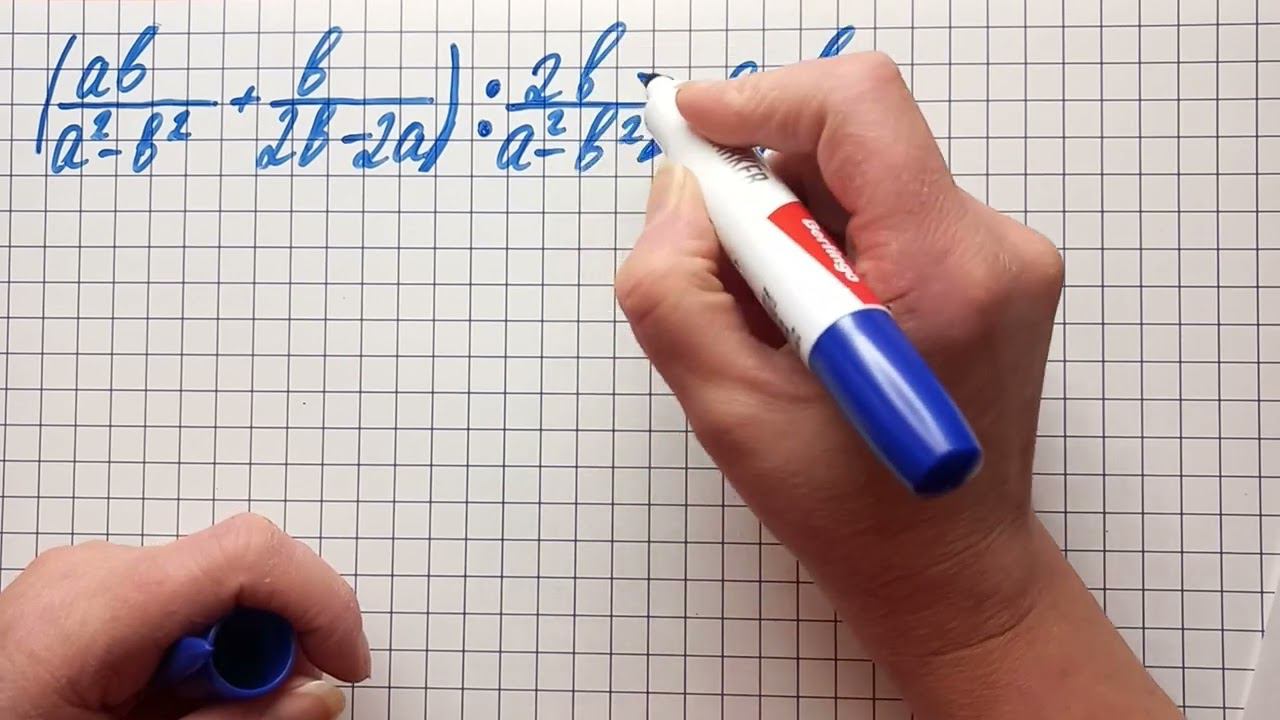 (ab/(a²-b²) + b/(2b-2a)) : 2b/(a²-b²)
Berlingo